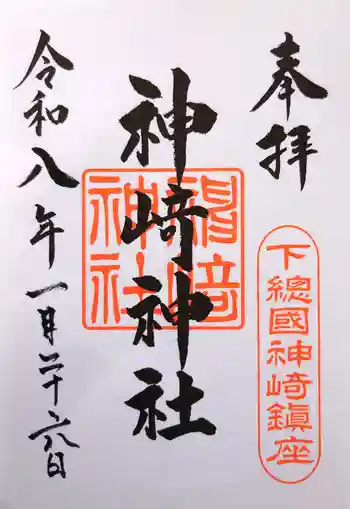 奉拝
下總國神崎鎮座
神崎神社
神崎神社
令和八年一月二十六日